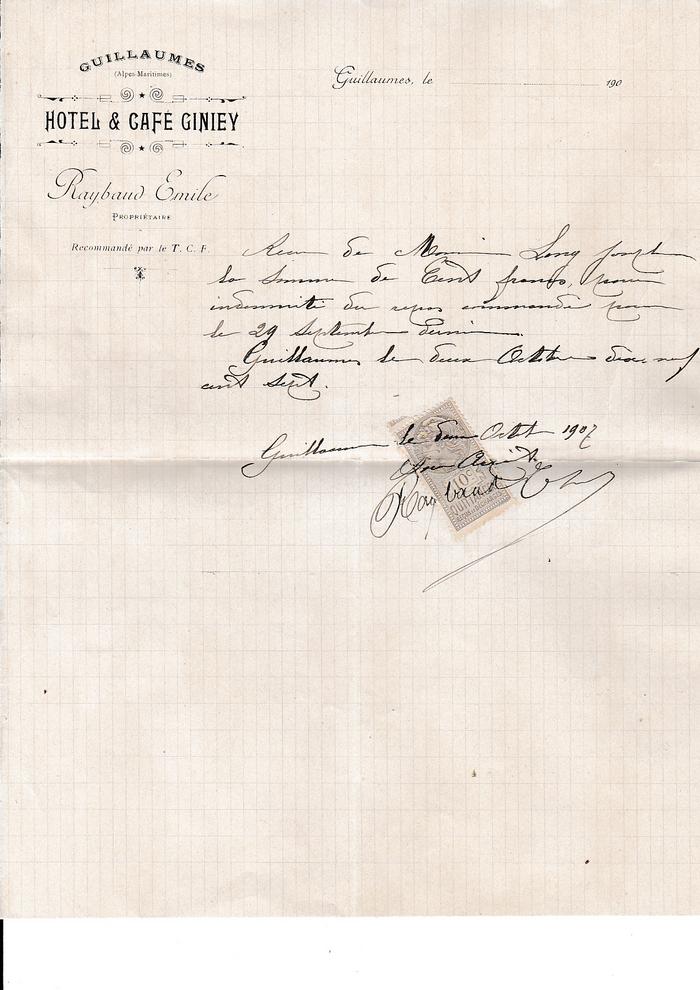 GUILLAUMES
(Alpes-Maritimes)
HOTEL & CAFÉ GINIEY
Raybaud Emile
PROPRIÉTAIRE
Recommandé par le T. C. F.
Guillaumes, le 190
Recu de Monsieur Long Joseph
la somme de Cent francs, pour
indemnité du repas commandé pour
le 29 Septembre dernier.
Guillaumes le deux Octobre dix-neuf
cent sept.
Guillaumes le deux Octobre 1907
Pour Acquit
Raybaud
10c
QUITTANCES